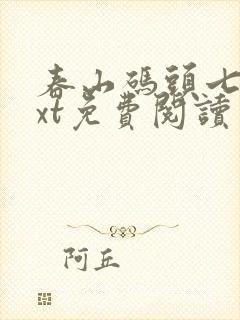 春山碼頭七
xt免費閱讀
阿丘